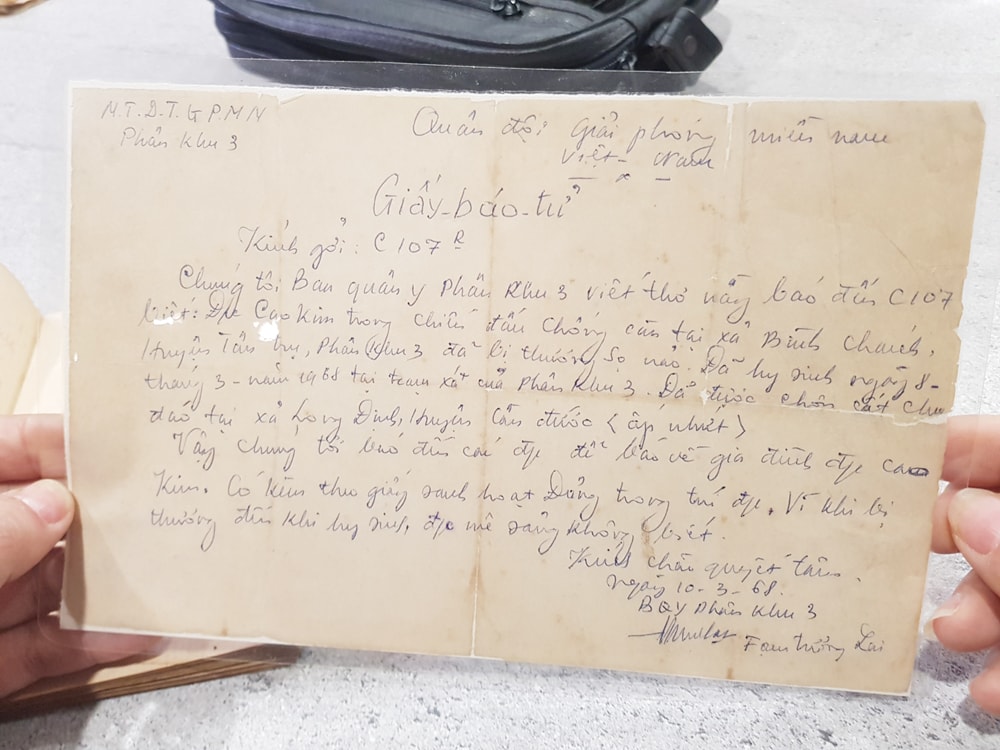 M.T.D.T.G P.M N
Phân Khu 3
Quân đội giải phóng miền nam
Việt - Nam
Giấy-báo-tử
Kính gởi: C 107 R
Chúng tôi Ban quân y Phân Khu 3 viết thơ nầy báo đến C107
biết: Đ/c Cao Kim trong chiến đấu chống càn tại xã Bình chánh,
Huyện Tân trụ, Phân Khu 3 đã bị thương sọ nảo. Đã hy sinh ngày 8-
tháng 3 - năm 1968 tại trạm xá của Phân Khu 3. Đã được chôn cất chu
đáo tại xả Long Định, Huyện cần đước < ấp nhứt >
Vậy chúng tôi báo đến các đ/c để báo về gia đình đ/c Cao
Kim. Có kèm theo giấy sanh hoạt Đảng trong túi đ/c. Vì khi bị
thương đến khi hy sinh, đ/c mê sảng không biết.
Kính chào quyết tâm.
Ngày 10-3-68.
BQY Phân Khu 3
Fạm tường Lai